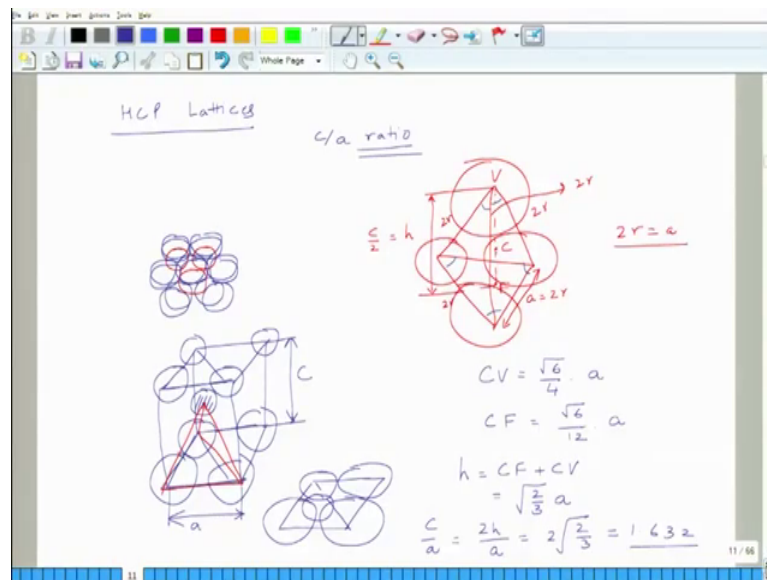 File Edit View Insert Actions Tools Help
B I
Whole Page
HCP Lattices
c/a ratio
V
2r
2r
2r
c/2 = h
C
2r = a
2r
F
a = 2r
C
a
CV = √6/4 . a
CF = √6/12 . a
h = CF + CV
= √2/3 a
c/a = 2h/a = 2√2/3 = 1 632
11 / 66
11